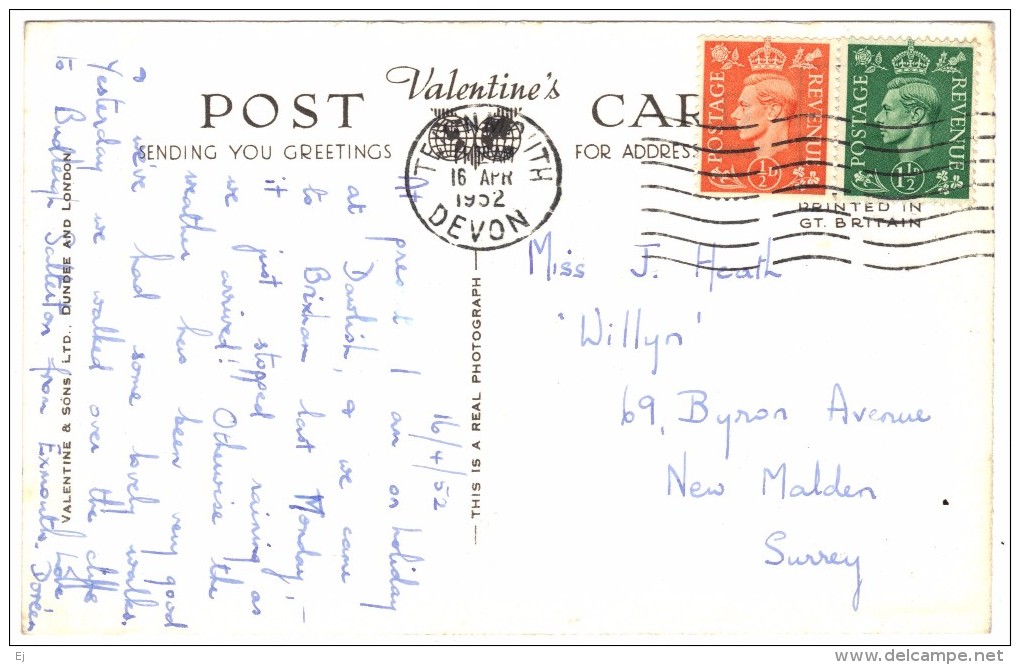 Valentine's
POST CAR
SENDING YOU GREETINGS
FOR ADDRESS
PRINTED IN
GT. BRITAIN
POSTAGE REVENUE
½D
POSTAGE REVENUE
1½D
16 APR
1952
DEVON
THIS IS A REAL PHOTOGRAPH
VALENTINE & SONS LTD., DUNDEE AND LONDON
16/4/52
At present I am on holiday
at Dawlish, & we came
to Brixham last Monday –
it just stopped raining as
we arrived! Otherwise the
weather has been very good
& we've had some lovely walks.
Yesterday we walked over the cliffs
to Budleigh Salterton from Exmouth. Love
Doreen
Miss J. Heath
'Willyn'
69, Byron Avenue
New Malden
Surrey
Ej
delcampe.net